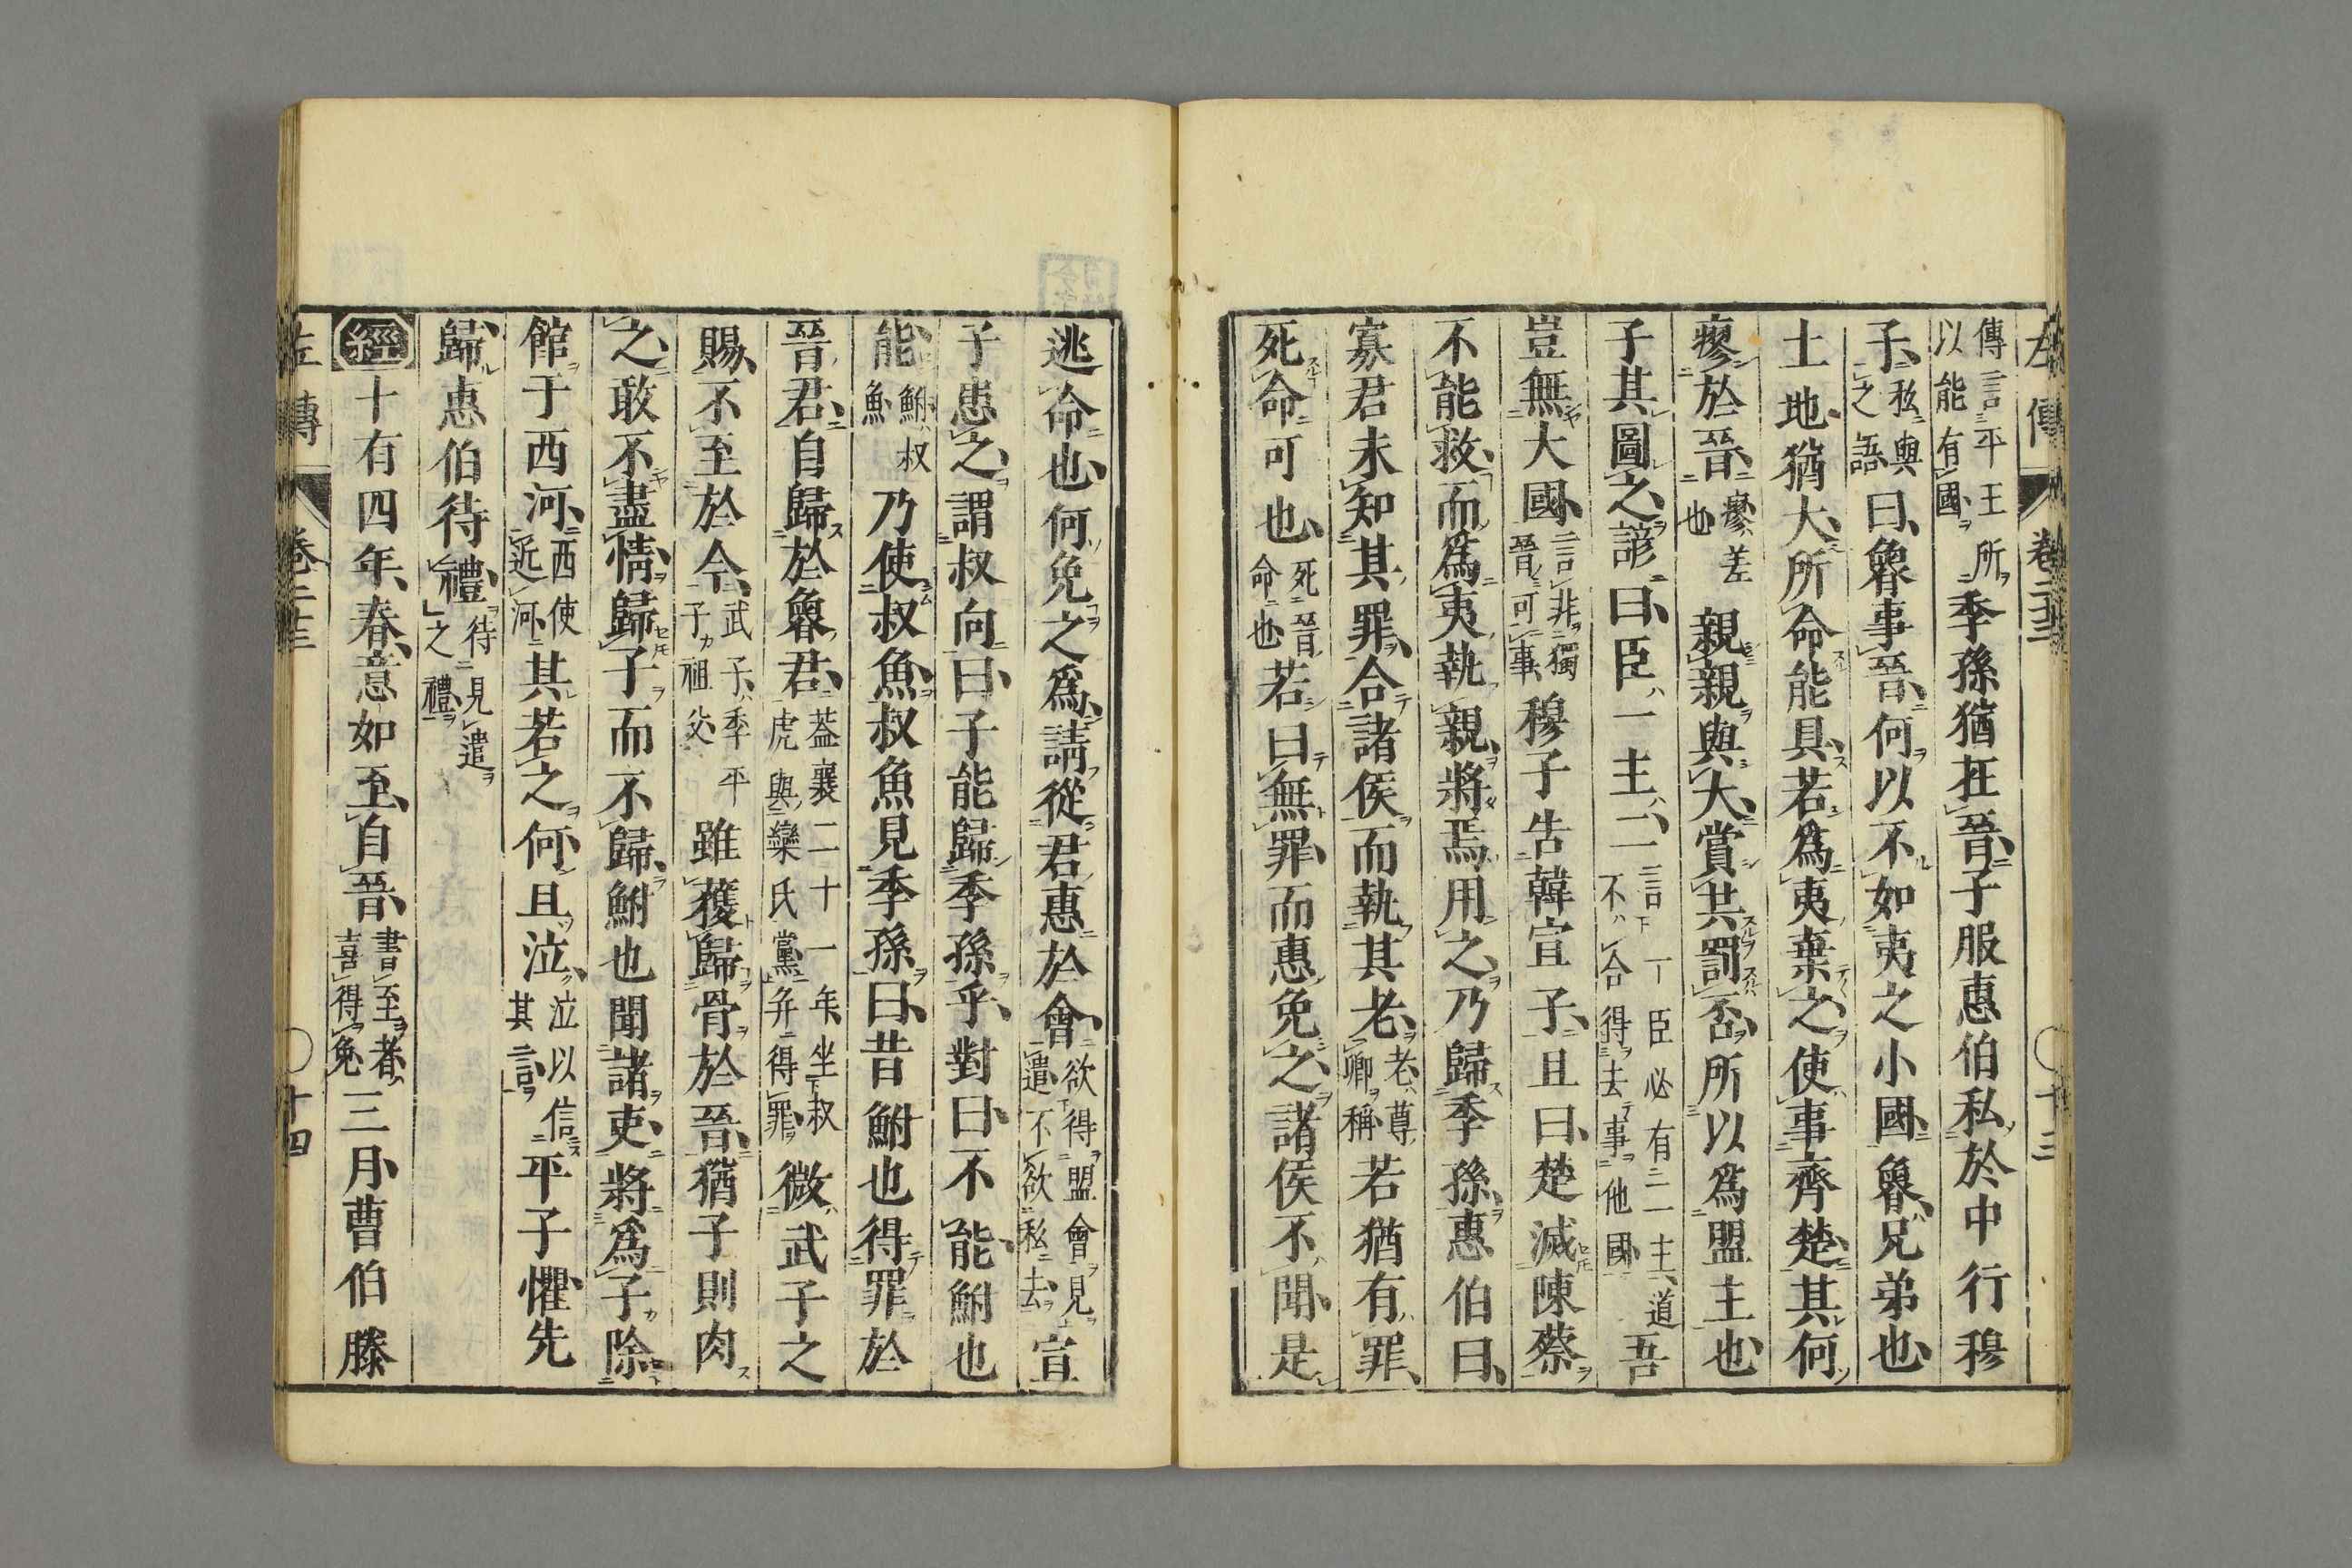 左傳 卷二十三 十三
傳言平王所以能有國季孫猶在晉子服惠伯私於中行穆
子私與之語曰魯事晉何以不如夷之小國魯兄弟也
土地猶大所命能具若爲夷棄之使事齊楚其何
瘳於晉瘳差也親親與大賞共罰否所以爲盟主也
子其圖之諺曰臣一主二言一臣必有二主道不合得去事他國吾
豈無大國言非獨晉可事穆子告韓宣子且曰楚滅陳蔡
不能救而爲夷執親將焉用之乃歸季孫惠伯曰
寡君未知其罪合諸侯而執其老老尊卿稱若猶有罪
死命可也死晉命也若曰無罪而惠免之諸侯不聞是
逃命也何免之爲請從君惠於會欲得盟會見遣不欲私去宣
子患之謂叔向曰子能歸季孫乎對曰不能鮒也
能鮒叔魚乃使叔魚叔魚見季孫曰昔鮒也得罪於
晉君自歸於魯君蓋襄二十一年坐叔虎與欒氏黨并得罪微武子之
賜不至於今武子季平子祖父雖獲歸骨於晉猶子則肉
之敢不盡情歸子而不歸鮒也聞諸吏將爲子除
館于西河西使近河其若之何且泣泣以信其言平子懼先
歸惠伯待禮待見遣之禮
經十有四年春意如至自晉書至者喜得免三月曹伯滕
左傳 卷二十三 十四